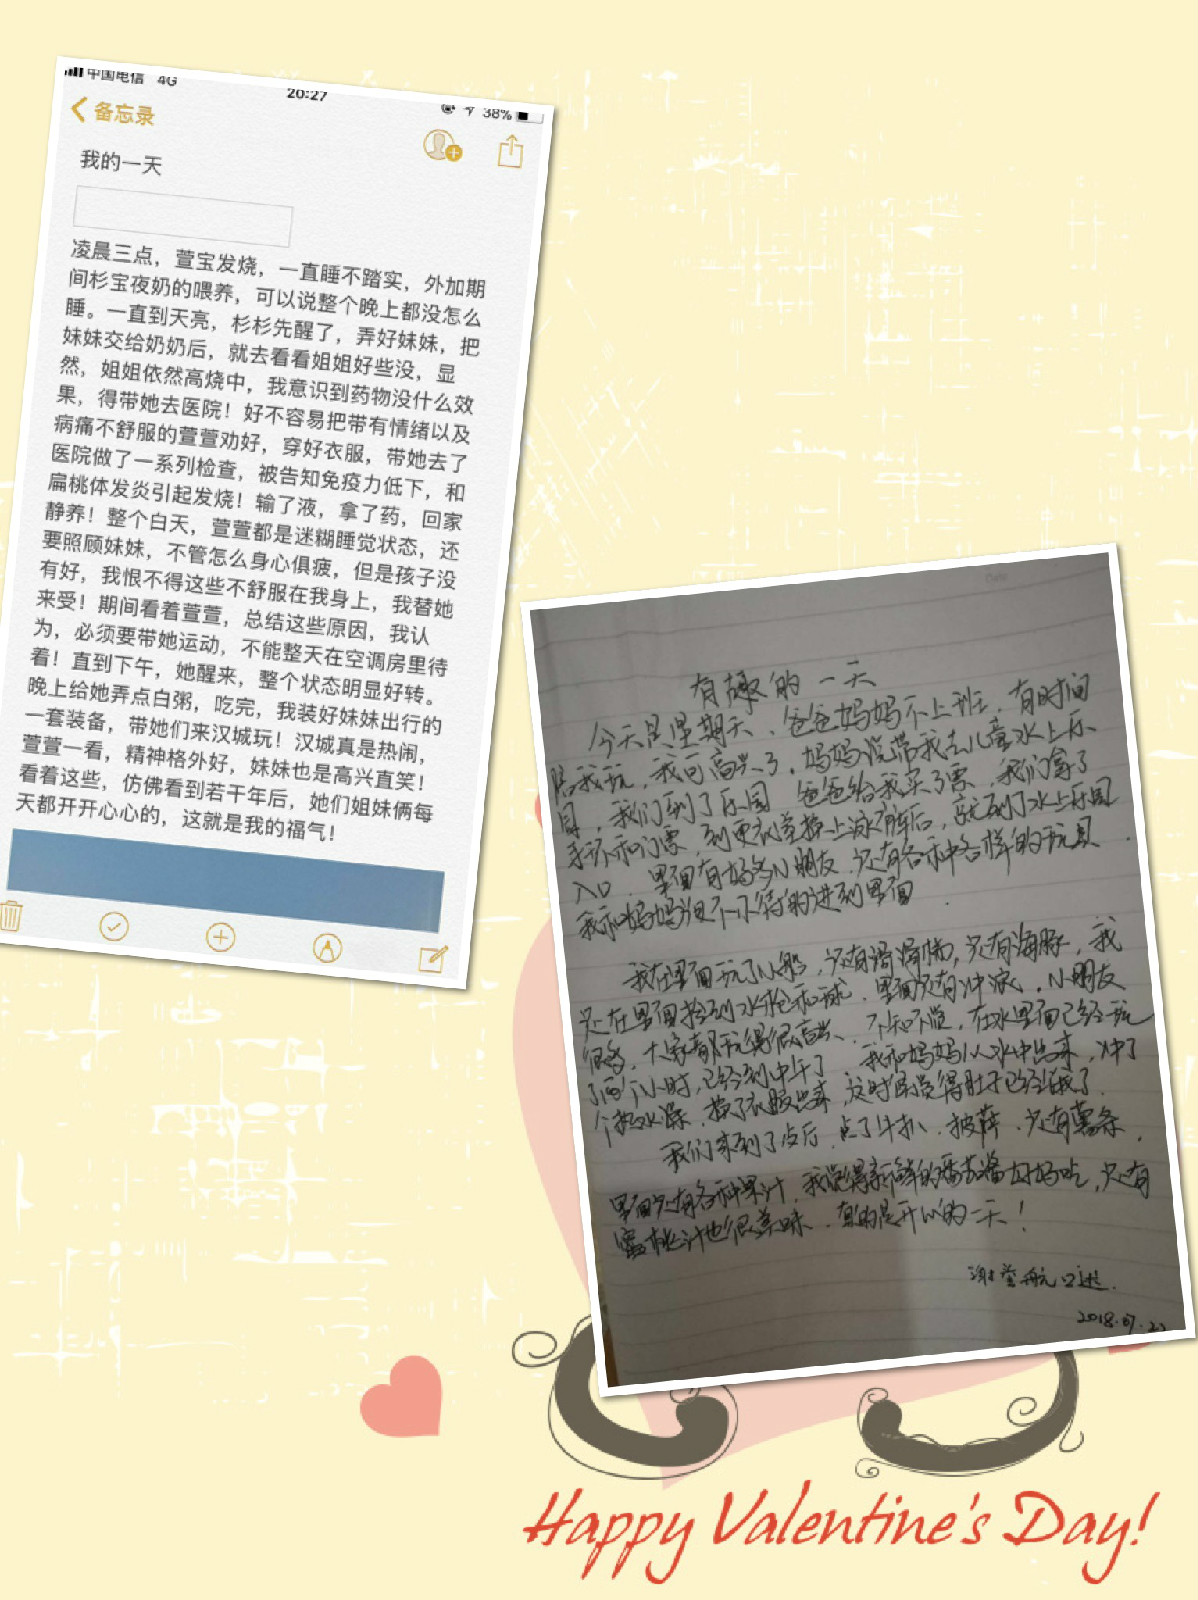 中国电信 4G 20:27 38%
备忘录
我的一天
凌晨三点，萱宝发烧，一直睡不踏实，外加期
间杉宝夜奶的喂养，可以说整个晚上都没怎么
睡。一直到天亮，杉杉先醒了，弄好妹妹，把
妹妹交给奶奶后，就去看看姐姐好些没，显
然，姐姐依然高烧中，我意识到药物没什么效
果，得带她去医院！好不容易把带有情绪以及
病痛不舒服的萱萱劝好，穿好衣服，带她去了
医院做了一系列检查，被告知免疫力低下，和
扁桃体发炎引起发烧！输了液，拿了药，回家
静养！整个白天，萱萱都是迷糊睡觉状态，还
要照顾妹妹，不管怎么身心俱疲，但是孩子没
有好，我恨不得这些不舒服在我身上，我替她
来受！期间看着萱萱，总结这些原因，我认
为，必须要带她运动，不能整天在空调房里待
着！直到下午，她醒来，整个状态明显好转。
晚上给她弄点白粥，吃完，我装好妹妹出行的
一套装备，带她们来汉城玩！汉城真是热闹，
萱萱一看，精神格外好，妹妹也是高兴直笑！
看着这些，仿佛看到若干年后，她们姐妹俩每
天都开开心心的，这就是我的福气！
有趣的一天
今天是星期天、爸爸妈妈不上班，有时间
陪我玩，我可高兴了，妈妈说带我去儿童水上乐
园，我们到了乐园 爸爸给我买了票，我们拿了
手环和门票 到更衣室换上泳衣后，就到了水上乐园
入口，里面有好多小朋友，还有各种各样的玩具．
我和妈妈迫不及待的进到里面．
我在里面玩了小船，还有滑滑梯，还有海豚，我
还在里面捡到水枪和球，里面还有冲浪，小朋友
很多，大家都玩得很高兴、不知不觉，在水里面已经玩
了两个小时，已经到中午了 我和妈妈从水中出来，冲了
个热水澡，换了衣服出来，这时候觉得肚子已经饿了．
我们来到了店后，点了牛扒，披萨，还有薯条，
里面还有各种果汁，我觉得新鲜的番茄酱好好吃，还有
蜜桃汁也很美味，真的是开心的一天！
谢 航口述．
2018.07.22
Happy Valentine's Day!